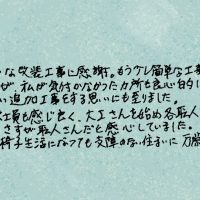 な改装工事に感謝。もう少し簡単な工事
が、私が気付かなかったカ所も良心的に
い追加工事をする思いにも至りました。
工員も感じ良く、大工さんを始め各職人
さすが職人さんだと感心していました。
椅子生活になっても支障のない住まいに 万歳